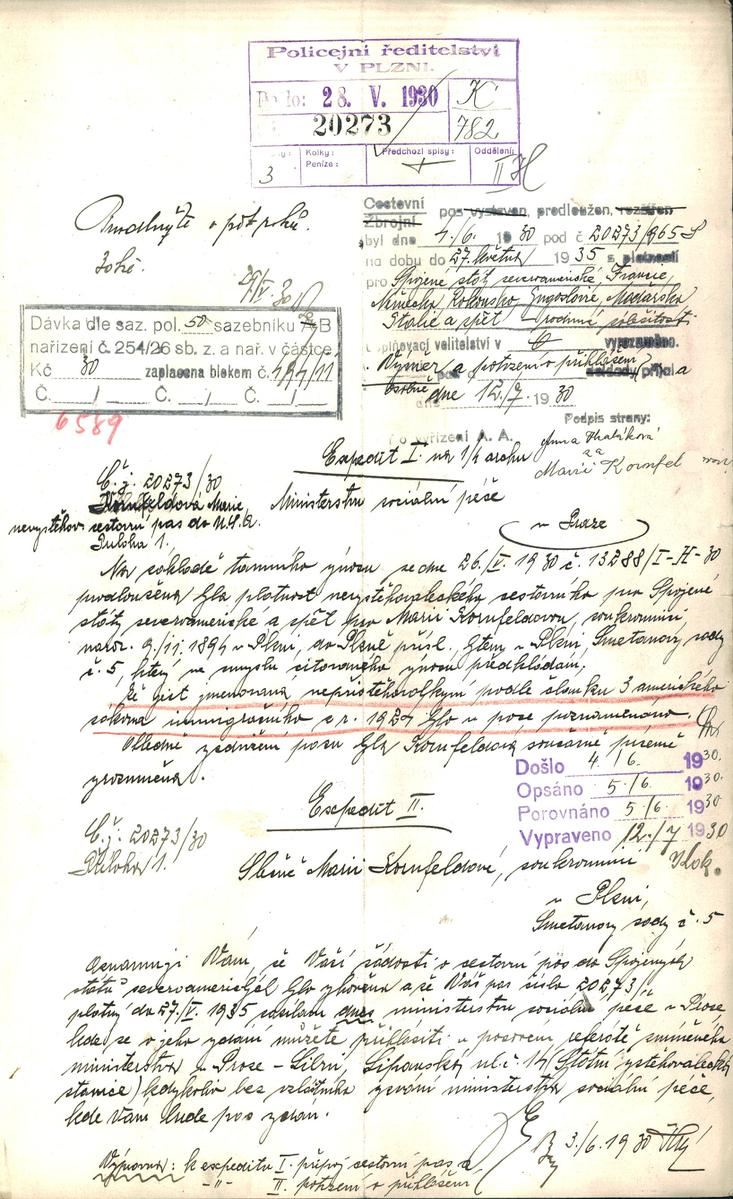 Policejní ředitelství
V PLZNI.
Došlo: 28. V. 1930 K
20273 782
3 Kolky: Peníze: Předchozí spisy: Oddělení:
II H
Prodlužte o pět roků.
Cestovní
Zbrojní pas vystaven, predloužen, rozšířen
byl dne 4./6. 1930 pod č 20273/965
na dobu do 27. května 1935 s platností
pro Spojené státy severoamerické, Francie,
Německo, Rakousko, Jugoslavie, Maďarsko
Italie a spět
Dávka dle saz. pol. 50 sazebníku B
nařízení č. 254/26 sb. z. a nař. v částce
Kč 30 zaplacena blokem č.
Č. / – Č. / –
6589
doplňovací velitelství v
Výměr a potvrzení o přihlášení přijala
dne 12./7. 1930
Podpis strany:
Po vyřízení A. A.
Marie Kornfel
Expedit I. na 1/4 archu
Č.j. 20273/30
Kornfeldová Marie,
nevystěhov. cestovní pas do U.S.A.
Příloha 1.
Ministerstvu sociální péče
v Praze
Na základě tamního výnosu ze dne 26./V. 1930 č. 13288/I-H-30
prodloužena byla platnost nevystěhovaleckého cestovního pro Spojené
státy severoamerické a spět pro Marii Kornfeldovou, soukromnici,
naroz. 9./11. 1894 v Plzni, do Plzně přísl., bytem v Plzni, Smetanovy sady
č. 5, který ve smyslu citovaného výnosu předkládám.
Že jest jmenovaná nepřistěhovalkyní podle článku 3 amerického
zákona immigračního z r. 1924 bylo v pase poznamenáno.
Ohledně vyzdvižení pasu byla Kornfeldová současně písemě
vyrozuměna.
Došlo 4./6. 1930.
Opsáno 5./6. 1930.
Porovnáno 5./6. 1930
Vypraveno 12./7 1930
Expedit II.
Č.j. 20273/30
Příloha 1.
Slečně Marii Kornfeldové, soukromnici
v Plzni,
Smetanovy sady č. 5
Oznamuji Vám, že Vaší žádosti o cestovní pas do Spojených
států severoamerických bylo vyhověno a že Váš pas číslo 20273,
platný do 27./V. 1935 zasílám dnes ministerstvu sociální péče v Praze,
kde se o jeho vydání můžete přihlásiti v pasovém referátě zmíněného
ministerstva v Praze - Libni, Lipanská ul. č. 14 (Státní vystěhovalecká
stanice) kdykoliv bez zvláštního vyzvání ministerstva sociální péče,
kde Vám bude pas vydán.
3./6. 1930
Výpravna: k expeditu I. připoj cestovní pas a
-"- II. potvrzení o přihlášení